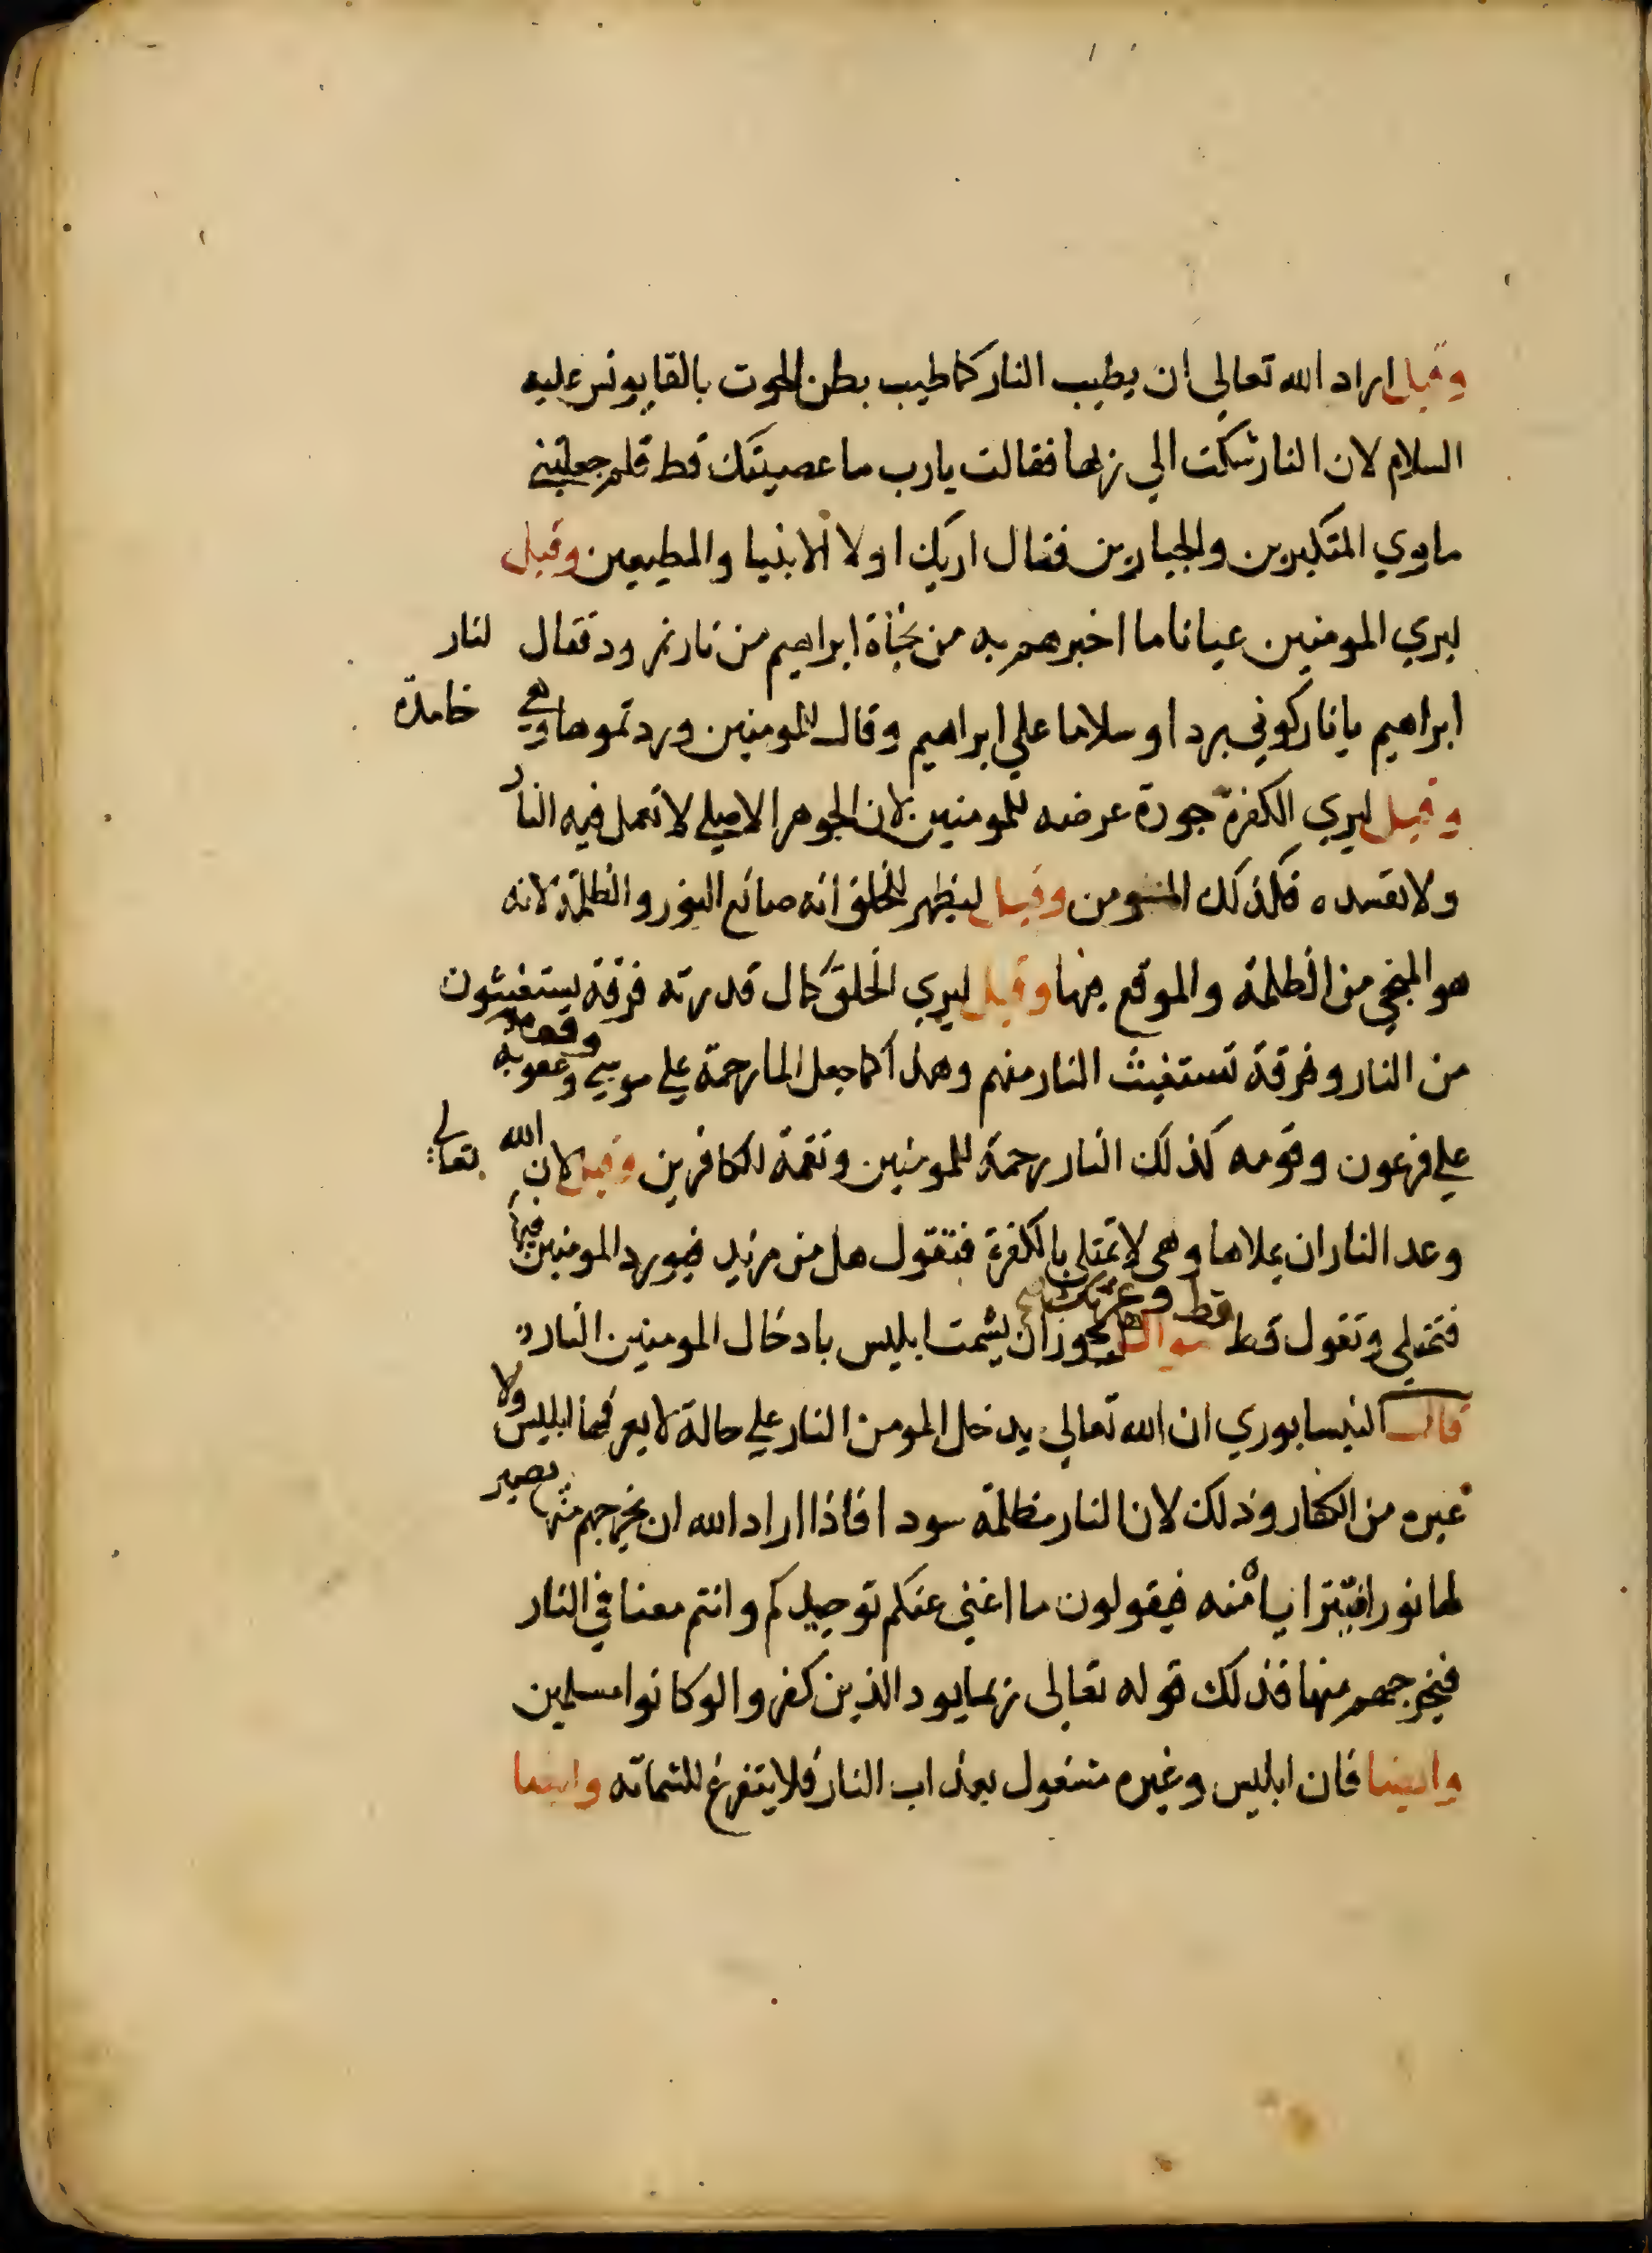 وقيل اراد الله تعالي ان يطيب النار كما طيب بطن الحوت بالقا يونس عليه
السلام لان النار شكت الي ربها فقالت يارب ما عصيتك قط فلم جعلتني
ماوي المتكبرين والجبارين فقال اريك اولا الانبيا والمطيعين وقيل
ليري المومنين عيانا ما اخبرهم به من نجاة ابراهيم من نار نمرود فقال لنار
ابراهيم يا نار كوني بردا وسلاما علي ابراهيم وقال للمومنين وردتموها وهي خامدة
وقيل ليري الكفرة جودة عرضه للمومنين لان الجوهر الاصلي لا تعمل فيه النار
ولا تفسده فكذلك المومن وقيل ليظهر للخلق انه صانع النور والظلمة لانه
هو المنجي من الظلمة والموقع فيها وقيل ليري الخلق كمال قدرته فرقة يستغيثون
من النار وفرقة تستغيث النار منهم وهذا كما جعل الما رحمة علي موسي وقومه وعقوبة
علي فرعون وقومه كذلك النار رحمة للمومنين ونقمة للكافرين وقيل لان الله تعالي
وعد النار ان يملاها وهي لا تمتلي بالكفرة فتقول هل من مزيد فيورد المومنين فيها
فتمتلي وتقول قط قط وعزتك سوال يجوز ان يشمت ابليس بادخال المومنين النار
قال النيسابوري ان الله تعالي يدخل المومن النار علي حالة لا يعرفها ابليس ولا
غيره من الكفار وذلك لان النار مظلمة سودا فاذا اراد الله ان يخرجهم منها تصير
لها نورا منه فيقولون ما اغني عنكم توحيدكم وانتم معنا في النار
فيخرجهم منها فذلك قوله تعالي ربما يود الذين كفروا لو كانوا مسلمين
وايضا فان ابليس وغيره مشغول بعذاب النار فلا يتفرغ للشماتة وايضا